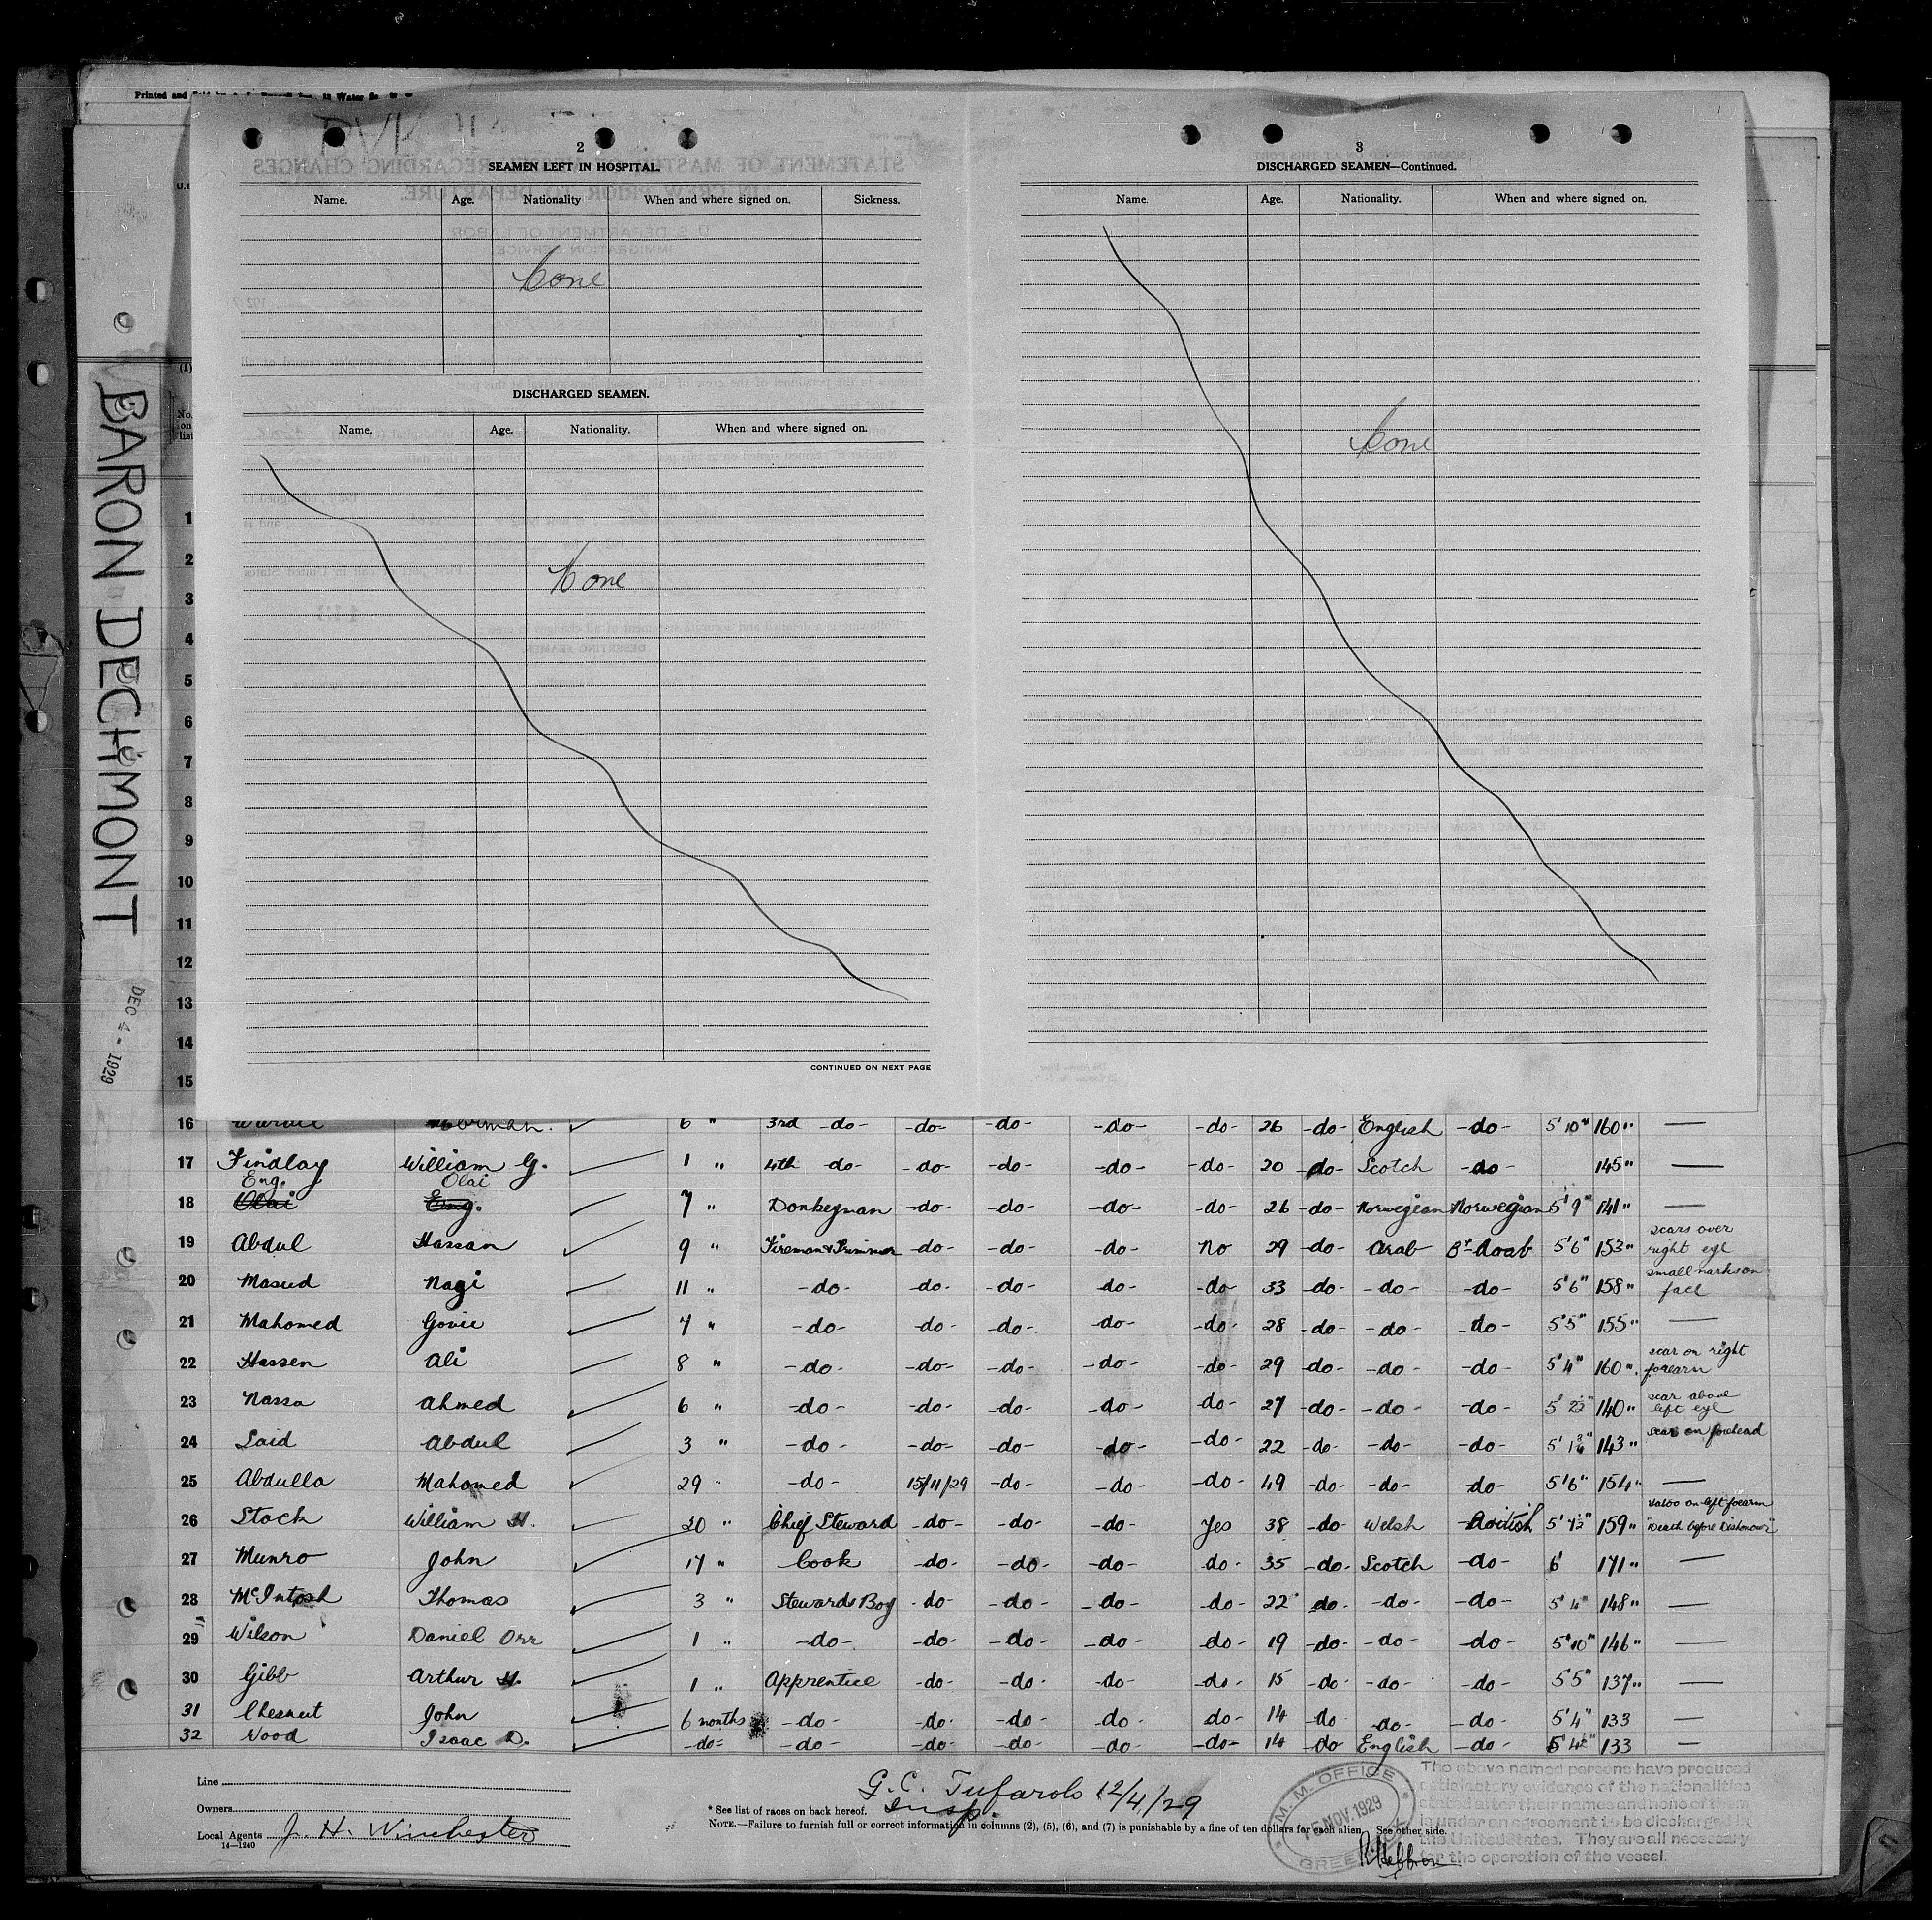 Printed and
BARON DECHMONT
DEC 4 - 1929
2
SEAMEN LEFT IN HOSPITAL.
Name. Age. Nationality When and where signed on. Sickness.
None
DISCHARGED SEAMEN.
Name. Age. Nationality. When and where signed on.
None
CONTINUED ON NEXT PAGE
3
DISCHARGED SEAMEN—Continued.
Name. Age. Nationality. When and where signed on.
None
(1)
No. on list
1
2
3
4
5
6
7
8
9
10
11
12
13
14
15
16 Norman. 6 " 3rd -do- -do- -do- -do- -do- 26 -do- English -do- 5'10" 160" —
17 Findlay William G. 1 " 4th -do- -do- -do- -do- -do- 20 -do- Scotch -do- 145" —
Eng. Olai
18 Olai Eng. 7 " Donkeyman -do- -do- -do- -do- 26 -do- Norwegian Norwegian 5'9" 141" —
19 Abdul Hassan 9 " Fireman & Trimmer -do- -do- -do- No 29 -do- Arab Bt Arab 5'6" 153" scars over right eye
20 Masud Nagi 11 " -do- -do- -do- -do- -do- 33 -do- -do- -do- 5'6" 158" small marks on face
21 Mahomed Govie 7 " -do- -do- -do- -do- -do- 28 -do- -do- -do- 5'5" 155" —
22 Hassen Ali 8 " -do- -do- -do- -do- -do- 29 -do- -do- -do- 5'4" 160" scar on right forearm
23 Nassa Ahmed 6 " -do- -do- -do- -do- -do- 27 -do- -do- -do- 5'2½" 140" scar above left eye
24 Said Abdul 3 " -do- -do- -do- -do- -do- 22 -do- -do- -do- 5'1¾" 143" scar on forehead
25 Abdulla Mahomed 29 " -do- 15/11/29 -do- -do- -do- 49 -do- -do- -do- 5'6" 154" —
26 Stock William H. 20 " Chief Steward -do- -do- -do- Yes 38 -do- Welsh British 5'7½" 159" tatoo on left forearm "Death before Dishonour"
27 Munro John 17 " Cook -do- -do- -do- -do- 35 -do- Scotch -do- 6' 171" —
28 McIntosh Thomas 3 " Stewards Boy -do- -do- -do- -do- 22 -do- -do- -do- 5'4" 148" —
29 Wilson Daniel Orr 1 " -do- -do- -do- -do- -do- 19 -do- -do- -do- 5'10" 146" —
30 Gibb Arthur H. 1 " Apprentice -do- -do- -do- -do- 15 -do- -do- -do- 5'5" 137" —
31 Chesnut John 6 months -do- -do- -do- -do- -do- 14 -do -do- -do- 5'4" 133 —
32 Wood Isaac D. -do- -do- -do- -do- -do- -do- 14 -do English -do- 5'4½" 133 —
Line
Owners
Local Agents J. H. Winchester
14—1240
G. C. Tufarolo 12/4/29
Insp.
* See list of races on back hereof.
NOTE.—Failure to furnish full or correct information in columns (2), (5), (6), and (7) is punishable by a fine of ten dollars for each alien. See other side.
M. M. OFFICE
15 NOV. 1929
The above named persons have produced
satisfactory evidence of the nationalities
stated after their names and none of them
is under an agreement to be discharged in
the United States. They are all necessary
for the operation of the vessel.